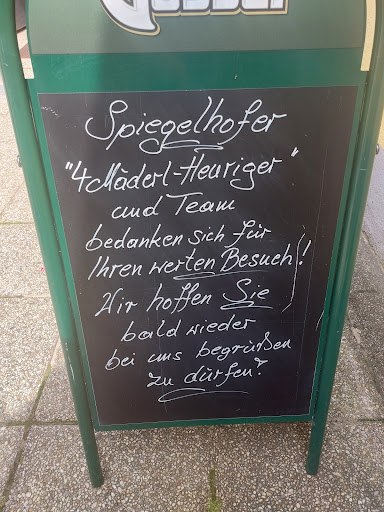 Gösser
Spiegelhofer
"4 Mäderl-Heuriger"
und Team
bedanken sich für
Ihren werten Besuch!
Wir hoffen Sie
bald wieder
bei uns begrüßen
zu dürfen?